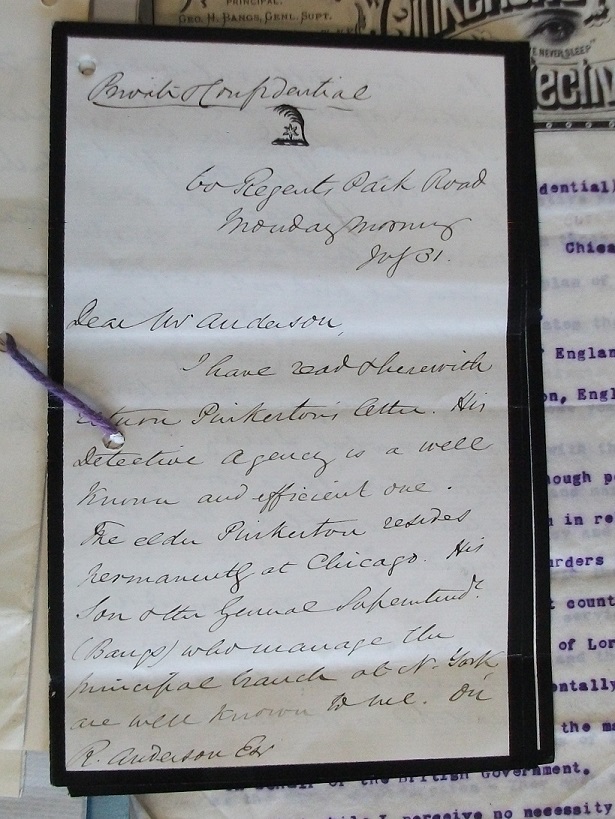 PRINCIPAL.
GEO. H. BANGS, GENL. SUPT.
WE NEVER SLEEP
Private & Confidential
60 Regents Park Road
Monday Morning
July 31.
Dear Mr Anderson,
I have read & herewith
return Pinkerton's letter. His
Detective Agency is a well
known and efficient one.
The elder Pinkerton resides
permanently at Chicago. His
Son & the General Superintendt.
(Bangs) who manage the
principal branch at N. York
are well known to me. On
R. Anderson Esq
dential)
Chica
England
on, Engl
hough p
in re
urders
t count
of Lor
entally
the ma
on behalf of the British Government.
while I perceive no necessity